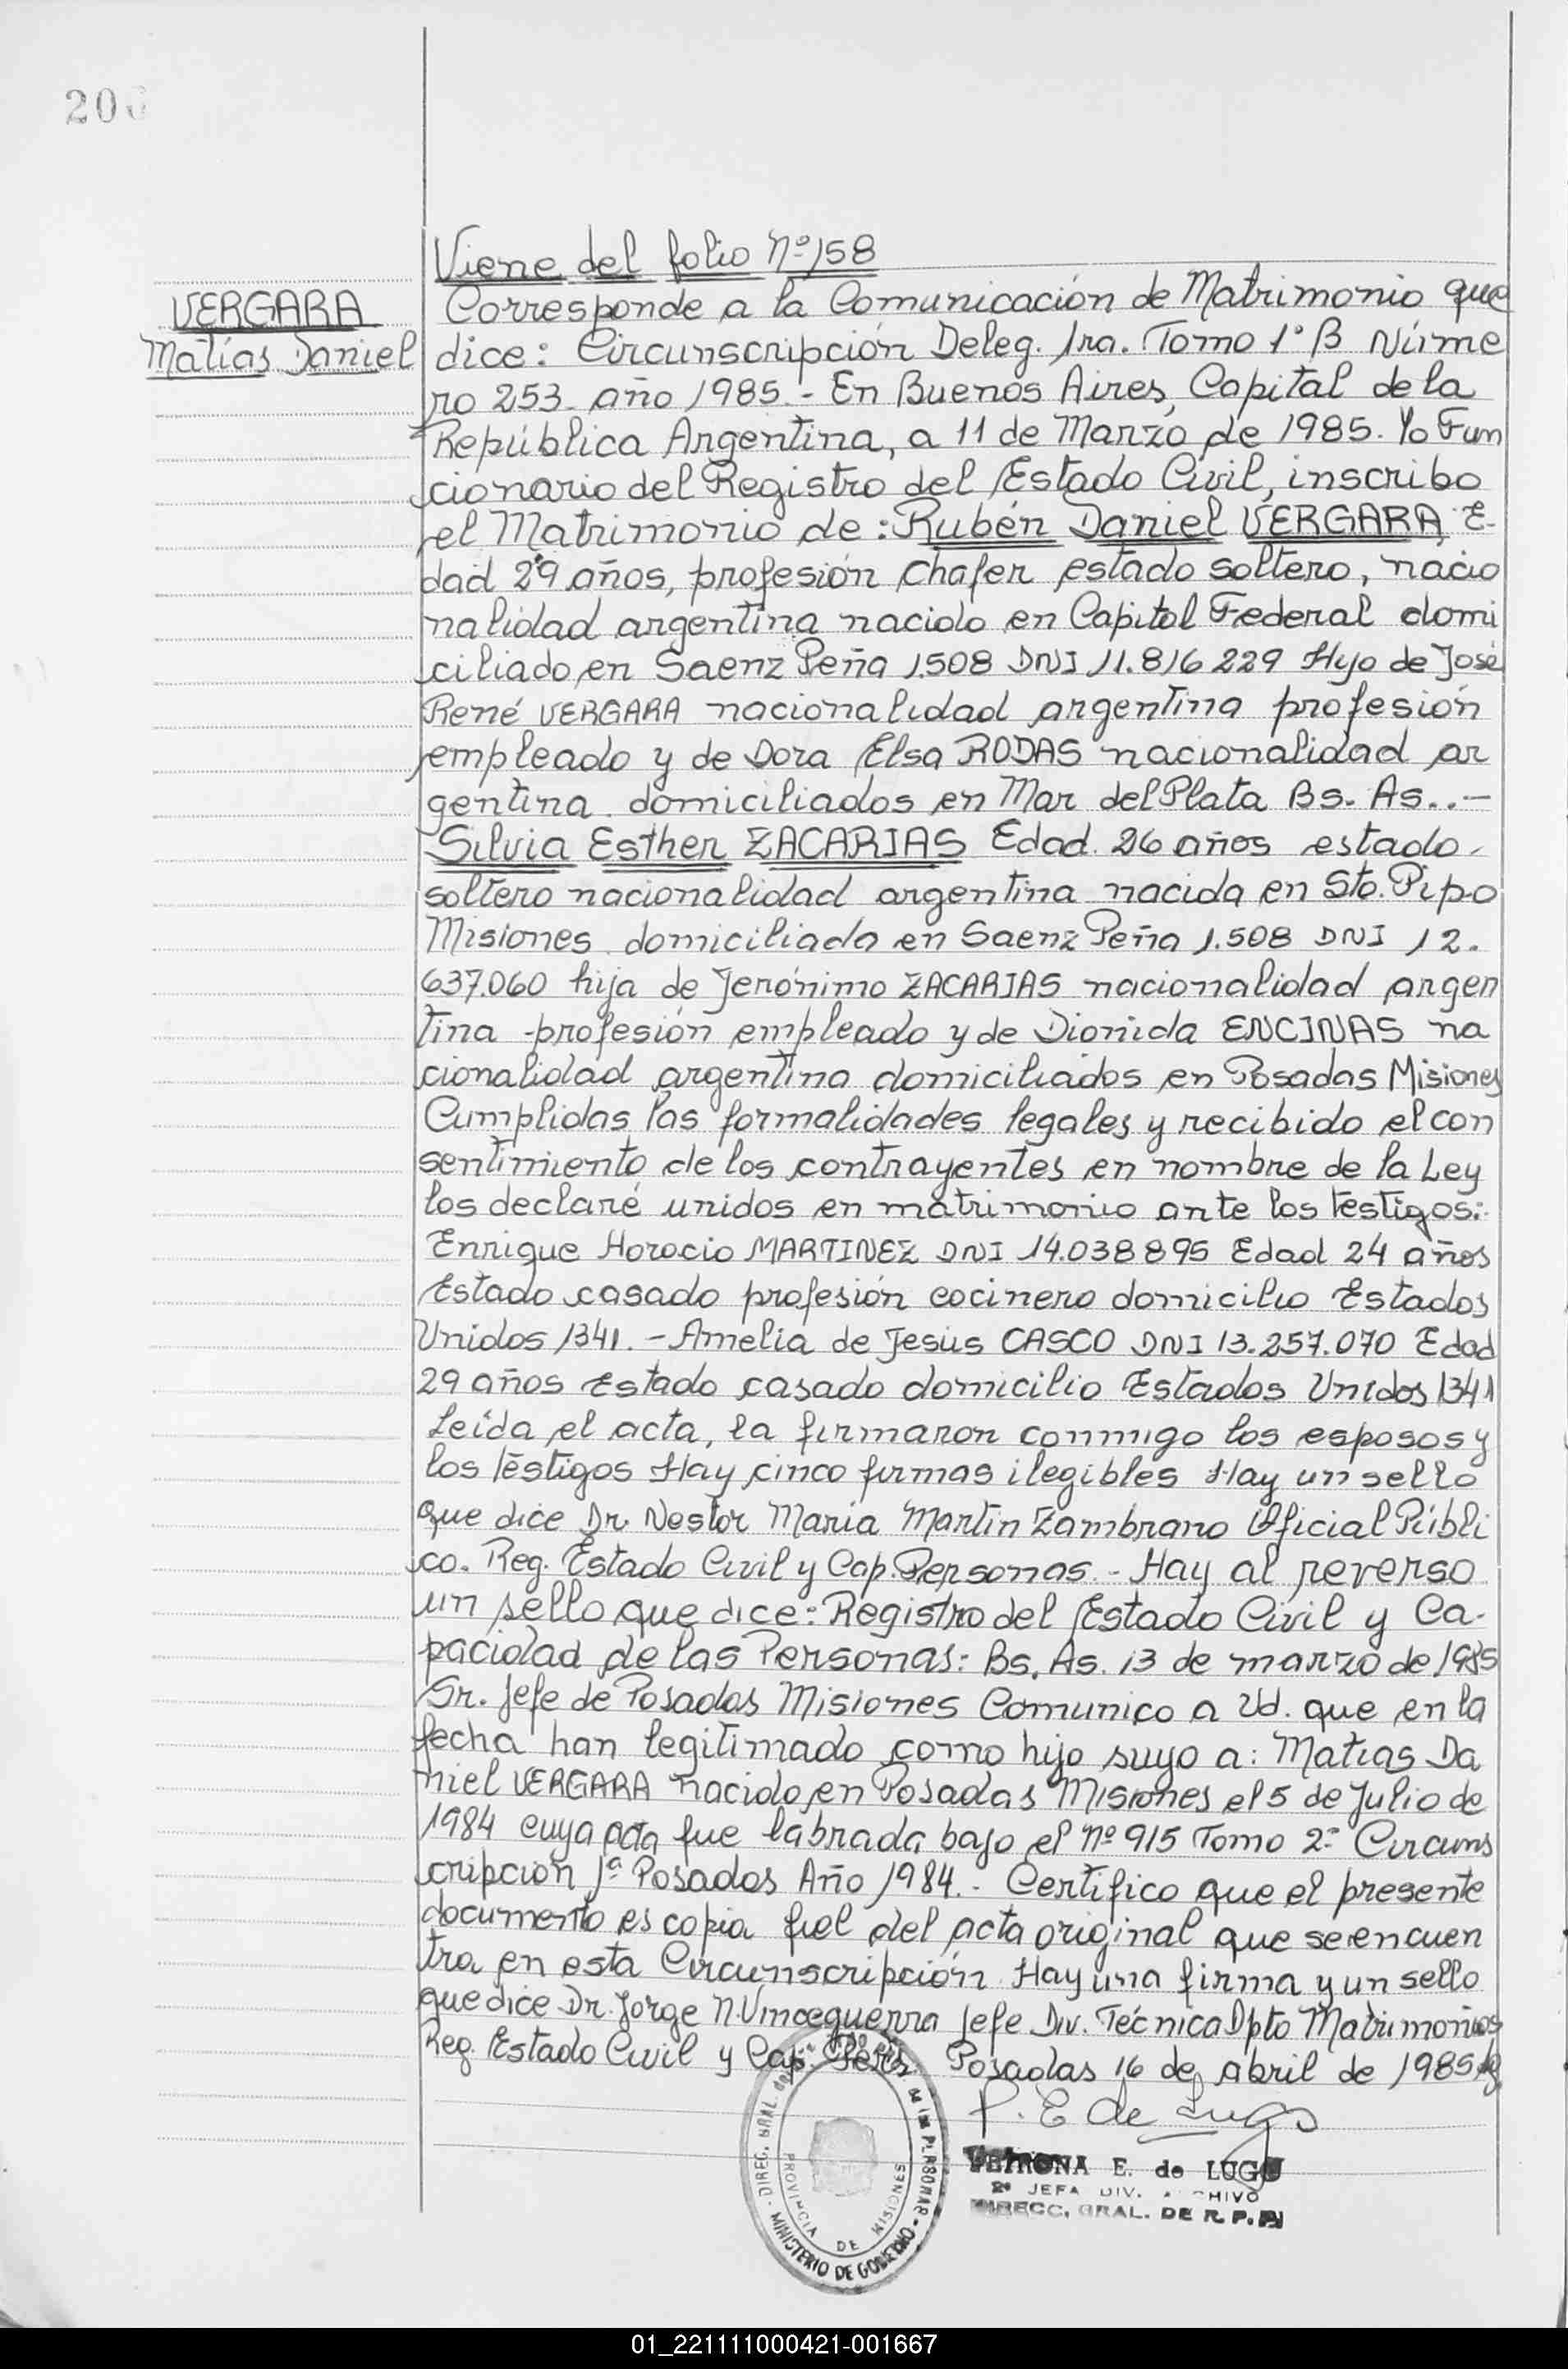 206
Viene del folio Nº 158
VERGARA
Matías Daniel
Corresponde a la Comunicación de Matrimonio que
dice: Circunscripción Deleg. 1ra. Tomo 1º B Núme
ro 253 año 1985.- En Buenos Aires, Capital de la
República Argentina, a 11 de Marzo de 1985. Yo Fun
cionario del Registro del Estado Civil, inscribo
el Matrimonio de: Rubén Daniel VERGARA, E-
dad 29 años, profesión chafer estado soltero, nacio
nalidad argentina nacido en Capital Federal domi
ciliado en Saenz Peña 1.508 DNI 11.816 229 Hijo de José
René VERGARA nacionalidad argentina profesión
empleado y de Dora Elsa RODAS nacionalidad ar
gentina domiciliados en Mar del Plata Bs. As..-
Silvia Esther ZACARIAS Edad 26 años estado
soltero nacionalidad argentina nacida en Sto. Pipo
Misiones domiciliada en Saenz Peña 1.508 DNI 12.
637.060 hija de Jerónimo ZACARIAS nacionalidad argen
tina -profesión empleado y de Dionida ENCINAS na
cionalidad argentina domiciliados en Posadas Misiones
Cumplidas las formalidades legales y recibido el con
sentimiento de los contrayentes en nombre de la Ley
los declaré unidos en matrimonio ante los testigos:
Enrique Horacio MARTINEZ DNI 14.038895 Edad 24 años
Estado casado profesión cocinero domicilio Estados
Unidos 1341.- Amelia de Jesús CASCO DNI 13.257.070 Edad
29 años Estado casado domicilio Estados Unidos 1341
Leída el acta, la firmaron conmigo los esposos y
los testigos Hay cinco firmas ilegibles Hay un sello
que dice Dr. Nestor María Martín Zambrano Oficial Públi
co. Reg. Estado Civil y Cap. Personas.- Hay al reverso
un sello que dice: Registro del Estado Civil y Ca-
pacidad de las Personas: Bs. As. 13 de marzo de 1985
Sr. Jefe de Posadas Misiones Comunico a Ud. que en la
fecha han legitimado como hijo suyo a: Matias Da
niel VERGARA nacido en Posadas Misiones el 5 de Julio de
1984 cuya acta fue labrada bajo el nº 915 Tomo 2º Circuns
cripción 1ª Posadas Año 1984.- Certifico que el presente
documento es copia fiel del acta original que se encuen
tra en esta Circunscripción Hay una firma y un sello
que dice Dr. Jorge N. Vinceguerra Jefe Div. Técnica Dpto Matrimonios
Reg. Estado Civil y Cap. Pers. Posadas 16 de abril de 1985
P. E de Lugo
PETRONA E. de LUGO
2º JEFA DIV. ARCHIVO
DIRECC. GRAL. DE R. P. P.
DIREC. GRAL. de las PERSONAS
PROVINCIA DE MISIONES
MINISTERIO DE GOBIERNO
01_221111000421-001667